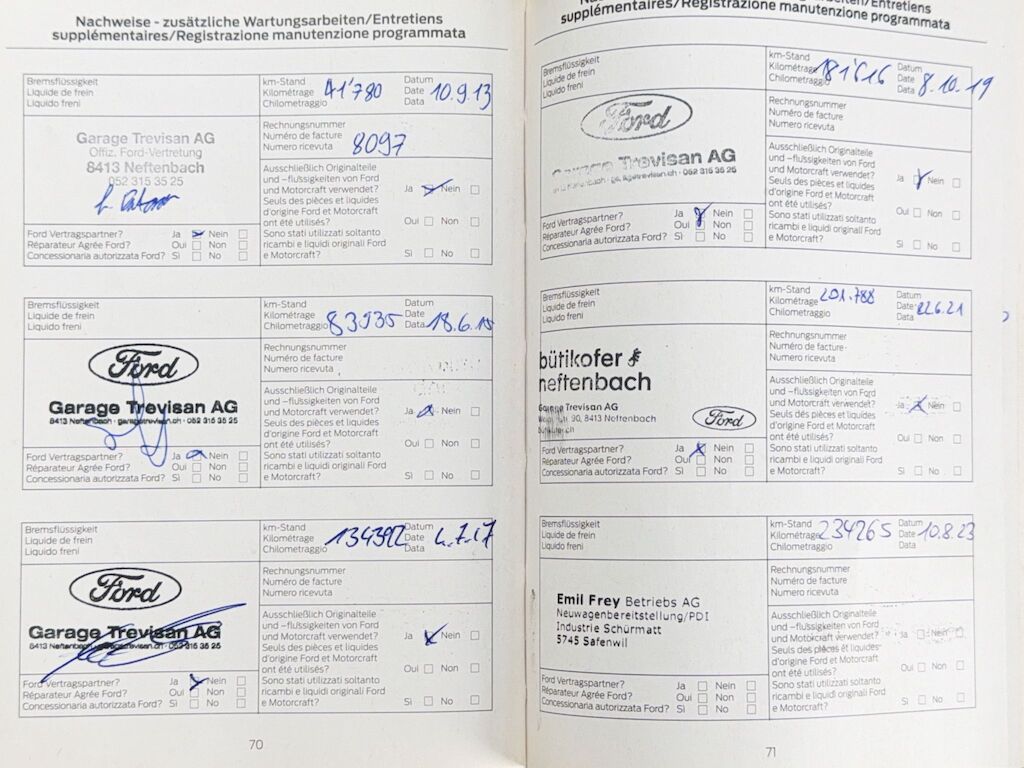 Nachweise - zusätzliche Wartungsarbeiten/Entretiens
supplémentaires/Registrazione manutenzione programmata
Bremsflüssigkeit
Liquide de frein
Liquido freni
km-Stand
Kilométrage
Chilometraggio
41'780
Datum
Date
Data
10.9.13
Garage Trevisan AG
Offiz. Ford-Vertretung
8413 Neftenbach
052 315 35 25
Rechnungsnummer
Numéro de facture
Numero ricevuta
8097
Ausschließlich Originalteile
und –flüssigkeiten von Ford
und Motorcraft verwendet?
Ja Nein
Seuls des pièces et liquides
d'origine Ford et Motorcraft
ont été utilisés?
Oui Non
Sono stati utilizzati soltanto
ricambi e liquidi originali Ford
e Motorcraft?
Sì No
Ford Vertragspartner? Ja Nein
Réparateur Agrée Ford? Oui Non
Concessionaria autorizzata Ford? Sì No
Bremsflüssigkeit
Liquide de frein
Liquido freni
km-Stand
Kilométrage
Chilometraggio
83535
Datum
Date
Data
18.6.15
Ford
Garage Trevisan AG
8413 Neftenbach · garagetrevisan.ch · 052 315 35 25
Rechnungsnummer
Numéro de facture
Numero ricevuta
Ausschließlich Originalteile
und –flüssigkeiten von Ford
und Motorcraft verwendet?
Ja Nein
Seuls des pièces et liquides
d'origine Ford et Motorcraft
ont été utilisés?
Oui Non
Sono stati utilizzati soltanto
ricambi e liquidi originali Ford
e Motorcraft?
Sì No
Ford Vertragspartner? Ja Nein
Réparateur Agrée Ford? Oui Non
Concessionaria autorizzata Ford? Sì No
Bremsflüssigkeit
Liquide de frein
Liquido freni
km-Stand
Kilométrage
Chilometraggio
134392
Datum
Date
Data
4.7.17
Ford
Garage Trevisan AG
8413 Neftenbach · garagetrevisan.ch · 052 315 35 25
Rechnungsnummer
Numéro de facture
Numero ricevuta
Ausschließlich Originalteile
und –flüssigkeiten von Ford
und Motorcraft verwendet?
Ja Nein
Seuls des pièces et liquides
d'origine Ford et Motorcraft
ont été utilisés?
Oui Non
Sono stati utilizzati soltanto
ricambi e liquidi originali Ford
e Motorcraft?
Sì No
Ford Vertragspartner? Ja Nein
Réparateur Agrée Ford? Oui Non
Concessionaria autorizzata Ford? Sì No
70
supplémentaires/Registrazione manutenzione programmata
Bremsflüssigkeit
Liquide de frein
Liquido freni
km-Stand
Kilométrage
Chilometraggio
181'616
Datum
Date
Data
8.10.19
Ford
Garage Trevisan AG
Neftenbach · garagetrevisan.ch · 052 315 35 25
Rechnungsnummer
Numéro de facture
Numero ricevuta
Ausschließlich Originalteile
und –flüssigkeiten von Ford
und Motorcraft verwendet?
Ja Nein
Seuls des pièces et liquides
d'origine Ford et Motorcraft
ont été utilisés?
Oui Non
Sono stati utilizzati soltanto
ricambi e liquidi originali Ford
e Motorcraft?
Sì No
Ford Vertragspartner? Ja Nein
Réparateur Agrée Ford? Oui Non
Concessionaria autorizzata Ford? Sì No
Bremsflüssigkeit
Liquide de frein
Liquido freni
km-Stand
Kilométrage
Chilometraggio
201.788
Datum
Date
Data
22.6.21
bütikofer
neftenbach
Garage Trevisan AG
90, 8413 Neftenbach
Ford
Rechnungsnummer
Numéro de facture
Numero ricevuta
Ausschließlich Originalteile
und –flüssigkeiten von Ford
und Motorcraft verwendet?
Ja Nein
Seuls des pièces et liquides
d'origine Ford et Motorcraft
ont été utilisés?
Oui Non
Sono stati utilizzati soltanto
ricambi e liquidi originali Ford
e Motorcraft?
Sì No
Ford Vertragspartner? Ja Nein
Réparateur Agrée Ford? Oui Non
Concessionaria autorizzata Ford? Sì No
Bremsflüssigkeit
Liquide de frein
Liquido freni
km-Stand
Kilométrage
Chilometraggio
234265
Datum
Date
Data
10.8.23
Emil Frey Betriebs AG
Neuwagenbereitstellung/PDI
Industrie Schürmatt
5745 Safenwil
Rechnungsnummer
Numéro de facture
Numero ricevuta
Ausschließlich Originalteile
und –flüssigkeiten von Ford
und Motorcraft verwendet?
Ja Nein
Seuls des pièces et liquides
d'origine Ford et Motorcraft
ont été utilisés?
Oui Non
Sono stati utilizzati soltanto
ricambi e liquidi originali Ford
e Motorcraft?
Sì No
Ford Vertragspartner? Ja Nein
Réparateur Agrée Ford? Oui Non
Concessionaria autorizzata Ford? Sì No
71